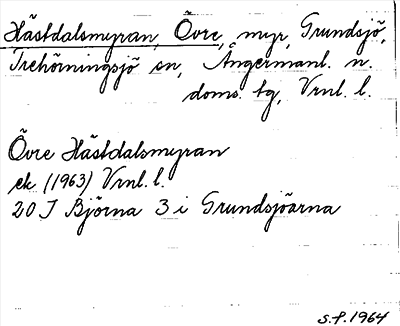 Hästdalsmyran, Övre, myr, Grundsjö,
Trehörningsjö sn, Ångermanl. n.
doms. tg, Vrnl. l.
Övre Hästdalsmyran
ek (1963) Vrnl. l.
20 I Björna 3 i Grundsjöarna
S.F. 1964